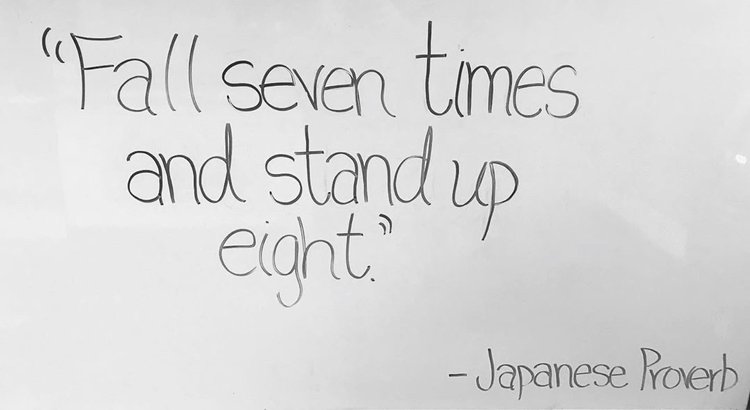 “Fall seven times
and stand up
eight.”
- Japanese Proverb